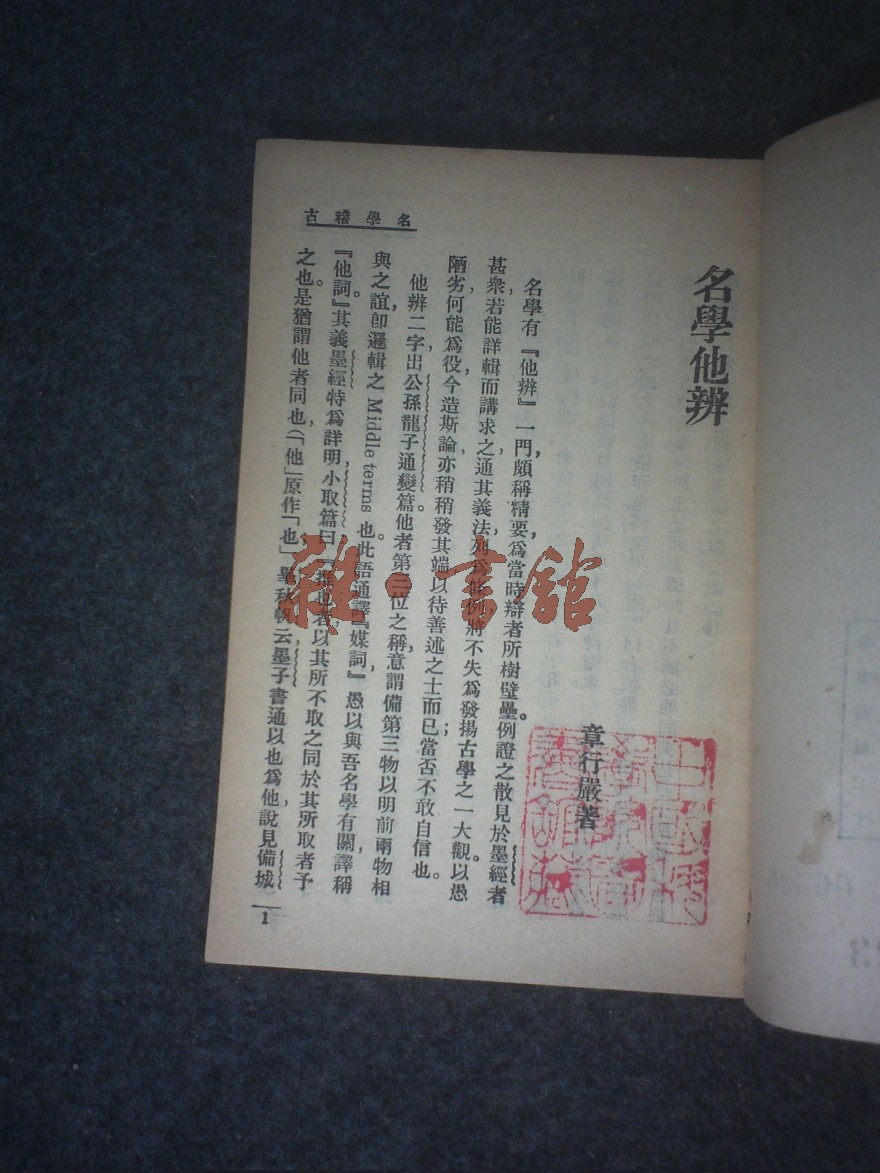 名學稽古
名學他辨
章行嚴著
名學有『他辨』一門，頗稱精要，爲當時辯者所樹壁壘。例證之散見於墨經者
甚衆，若能詳輯而講求之，通其義法，列爲條例，將不失爲發揚古學之一大觀。以愚
陋劣，何能爲役，今造斯論，亦稍稍發其端，以待善述之士而已；當否不敢自信也。
他辨二字，出公孫龍子通變篇。他者第三位之稱，意謂備第三物以明前兩物相
與之誼，卽邏輯之 Middle terms 也。此語通譯『媒詞』，愚以與吾名學有關，譯稱
『他詞。』其義墨經特爲詳明，小取篇曰：『推也者，以其所不取之同於其所取者予
之也。是猶謂他者同也（「他」原作「也」畢秋帆云墨子書通以也爲他，說見備城
1
雜·書館